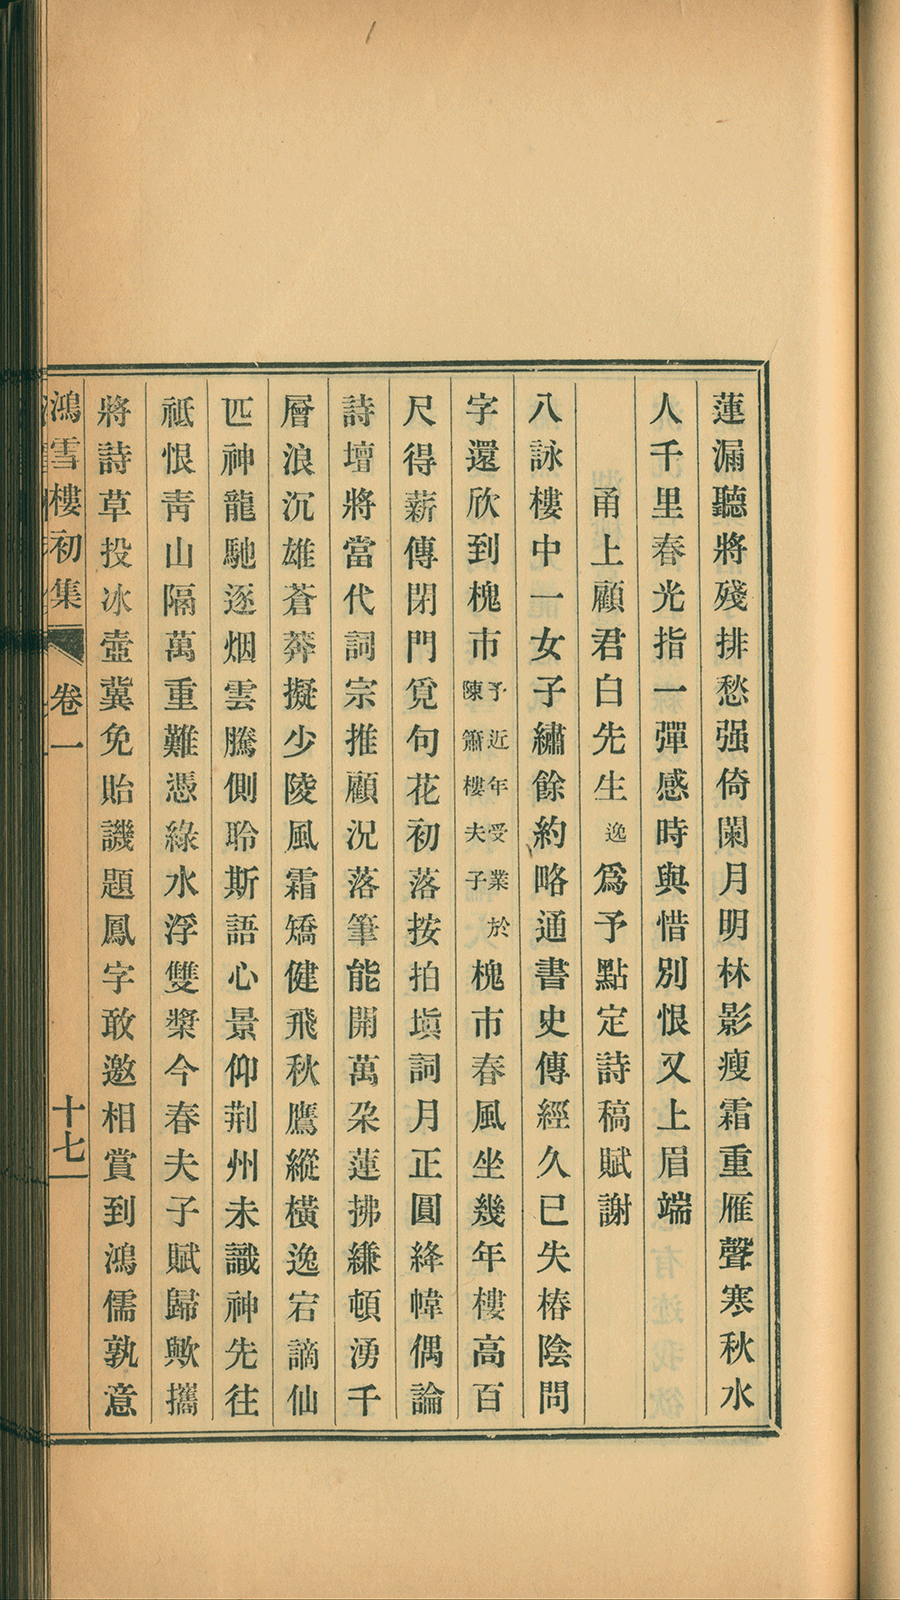 蓮漏聽將殘排愁强倚闌月明林影瘦霜重雁聲寒秋水
人千里春光指一彈感時與惜別恨又上眉端
甬上顧君白先生逸爲予點定詩稿賦謝
八詠樓中一女子繡餘約略通書史傳經久已失椿陰問
字還欣到槐市予近年受業於陳簫樓夫子槐市春風坐幾年樓高百
尺得薪傳閉門覓句花初落按拍塡詞月正圓絳幃偶論
詩壇將當代詞宗推顧況落筆能開萬朶蓮拂縑頓湧千
層浪沉雄蒼莽擬少陵風霜矯健飛秋鷹縱橫逸宕謫仙
匹神龍馳逐烟雲騰側聆斯語心景仰荆州未識神先往
祗恨靑山隔萬重難憑綠水浮雙槳今春夫子賦歸歟攜
將詩草投冰壺冀免貽譏題鳳字敢邀相賞到鴻儒孰意
鴻雪樓初集 卷一 十七